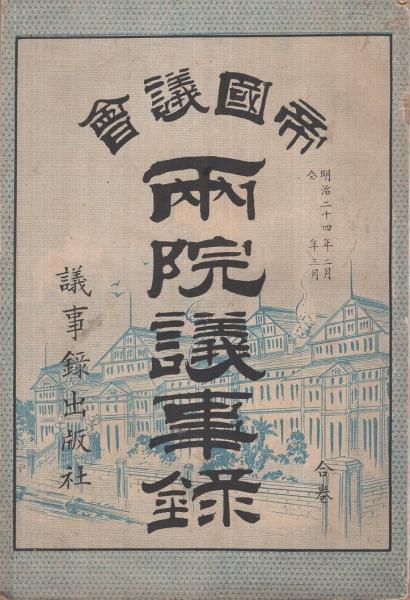 帝國議會
兩院議事録
明治二十四年二月
仝年三月
合卷
議事録出版社